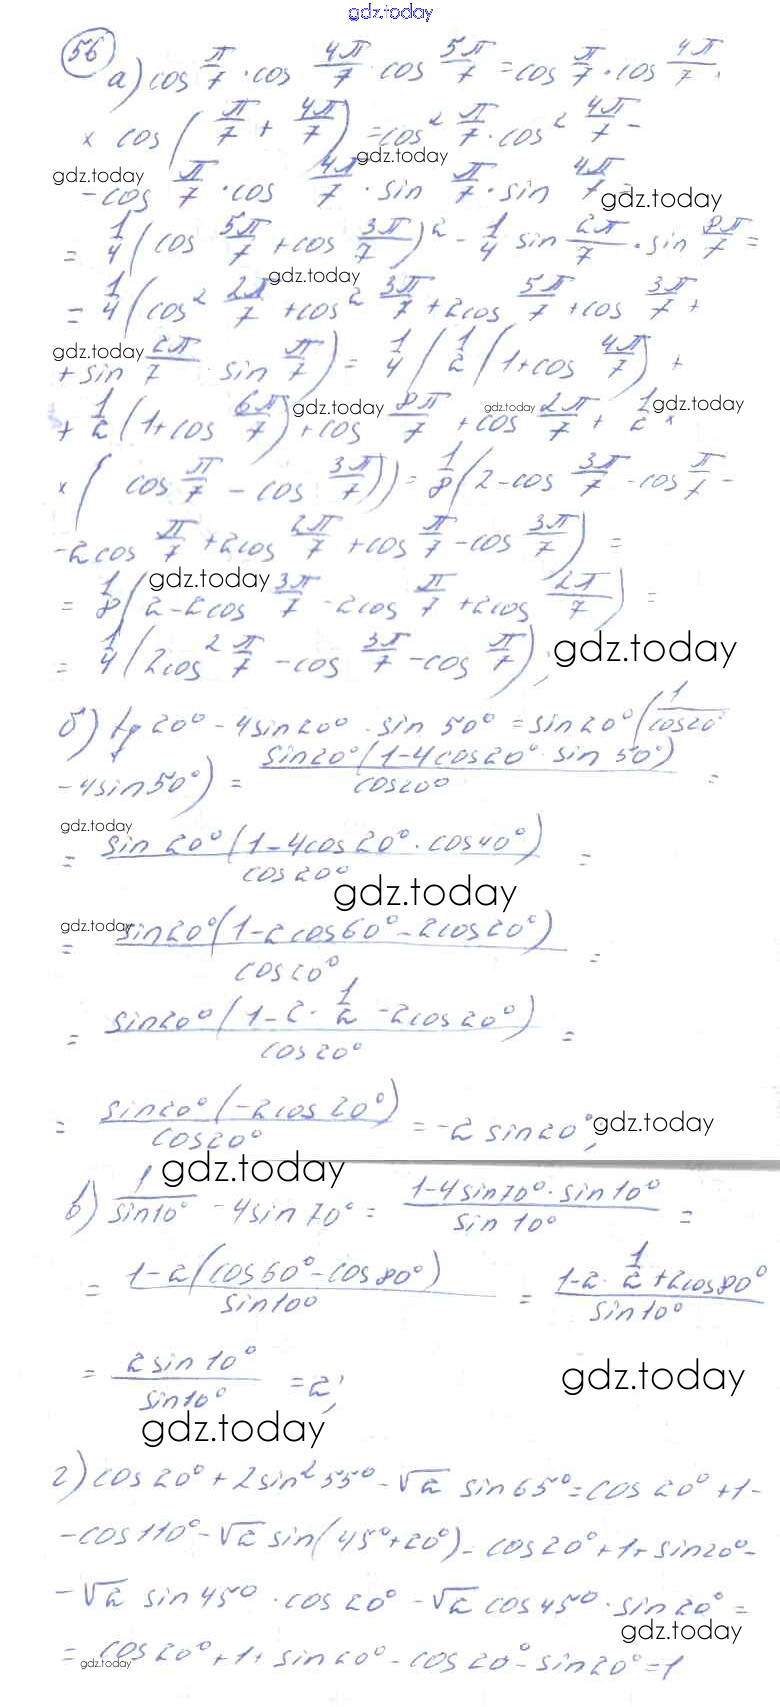 gdz.today
56
а) cos π/7 · cos 4π/7 · cos 5π/7 = cos π/7 · cos 4π/7 ·
× cos(π/7 + 4π/7) = cos² π/7 · cos² 4π/7 −
gdz.today
− cos π/7 · cos 4π/7 · sin π/7 · sin 4π/7 =
gdz.today gdz.today
= 1/4 (cos 5π/7 + cos 3π/7)² − 1/4 sin 2π/7 · sin 8π/7 =
gdz.today
= 1/4 (cos² 2π/7 + cos² 3π/7 + 2cos 5π/7 + cos 3π/7 +
gdz.today
+ sin 2π/7 · sin π/7) = 1/4 (1/2 (1 + cos 4π/7) +
gdz.today gdz.today gdz.today
+ 1/2 (1 + cos 6π/7) + cos 8π/7 + cos 2π/7 + 1/2 ×
× (cos π/7 − cos 3π/7)) = 1/8 (2 − cos 3π/7 − cos π/7 −
− 2cos π/7 + 2cos 2π/7 + cos π/7 − cos 3π/7) =
gdz.today
= 1/8 (2 − 2cos 3π/7 − 2cos π/7 + 2cos 2π/7) =
= 1/4 (2cos² π/7 − cos 3π/7 − cos π/7);
gdz.today
б) tg 20° − 4sin 20° · sin 50° = sin 20° (1/cos 20°
− 4sin 50°) = sin 20° (1 − 4cos 20° · sin 50°)/cos 20° =
gdz.today
= sin 20° (1 − 4cos 20° · cos 40°)/cos 20° =
gdz.today
gdz.today
= sin 20° (1 − 2cos 60° − 2cos 20°)/cos 20° =
= sin 20° (1 − 2 · 1/2 − 2cos 20°)/cos 20° =
= sin 20° (−2cos 20°)/cos 20° = −2 sin 20°;
gdz.today
gdz.today
в) 1/sin 10° − 4sin 70° = 1 − 4sin 70° · sin 10°/sin 10° =
= 1 − 2(cos 60° − cos 80°)/sin 10° = 1 − 2 · 1/2 + 2cos 80°/sin 10°
= 2sin 10°/sin 10° = 2;
gdz.today
gdz.today
г) cos 20° + 2sin² 55° − √2 sin 65° = cos 20° + 1 −
− cos 110° − √2 sin(45° + 20°) = cos 20° + 1 + sin 20° −
− √2 sin 45° · cos 20° − √2 cos 45° · sin 20° =
gdz.today
= cos 20° + 1 + sin 20° − cos 20° − sin 20° = 1
gdz.today